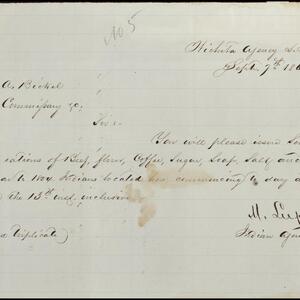 No 5
Wichita Agency
Sept 7th 186
A. Bickel
Commissary &c.
Sir:
You will please issue
rations of Beef, flour, Coffee, Sugar, Soap, Salt, and
to 1804 Indians located here, commencing to day a
the 13th inst. inclusive
M.
Indian Agen
Triplicate)